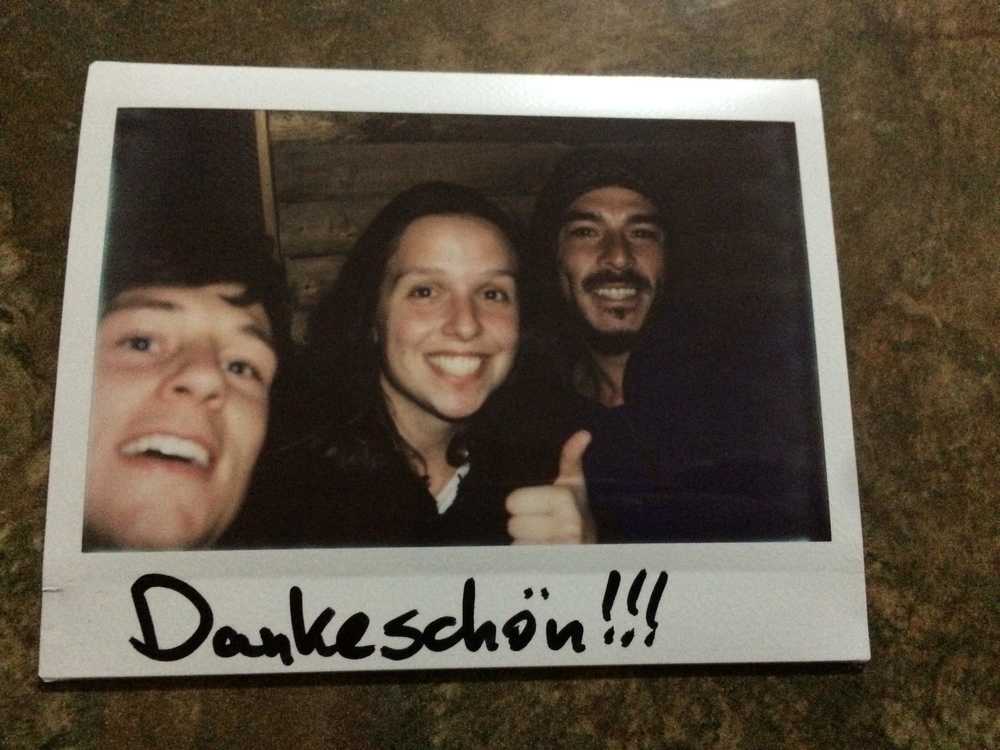 Dankeschön!!!